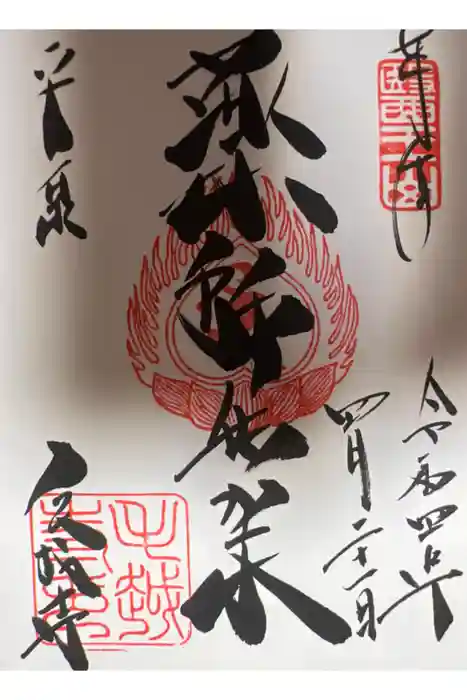 奉拝
令和四年
四月二十一日
薬師如来
平泉
毛越寺